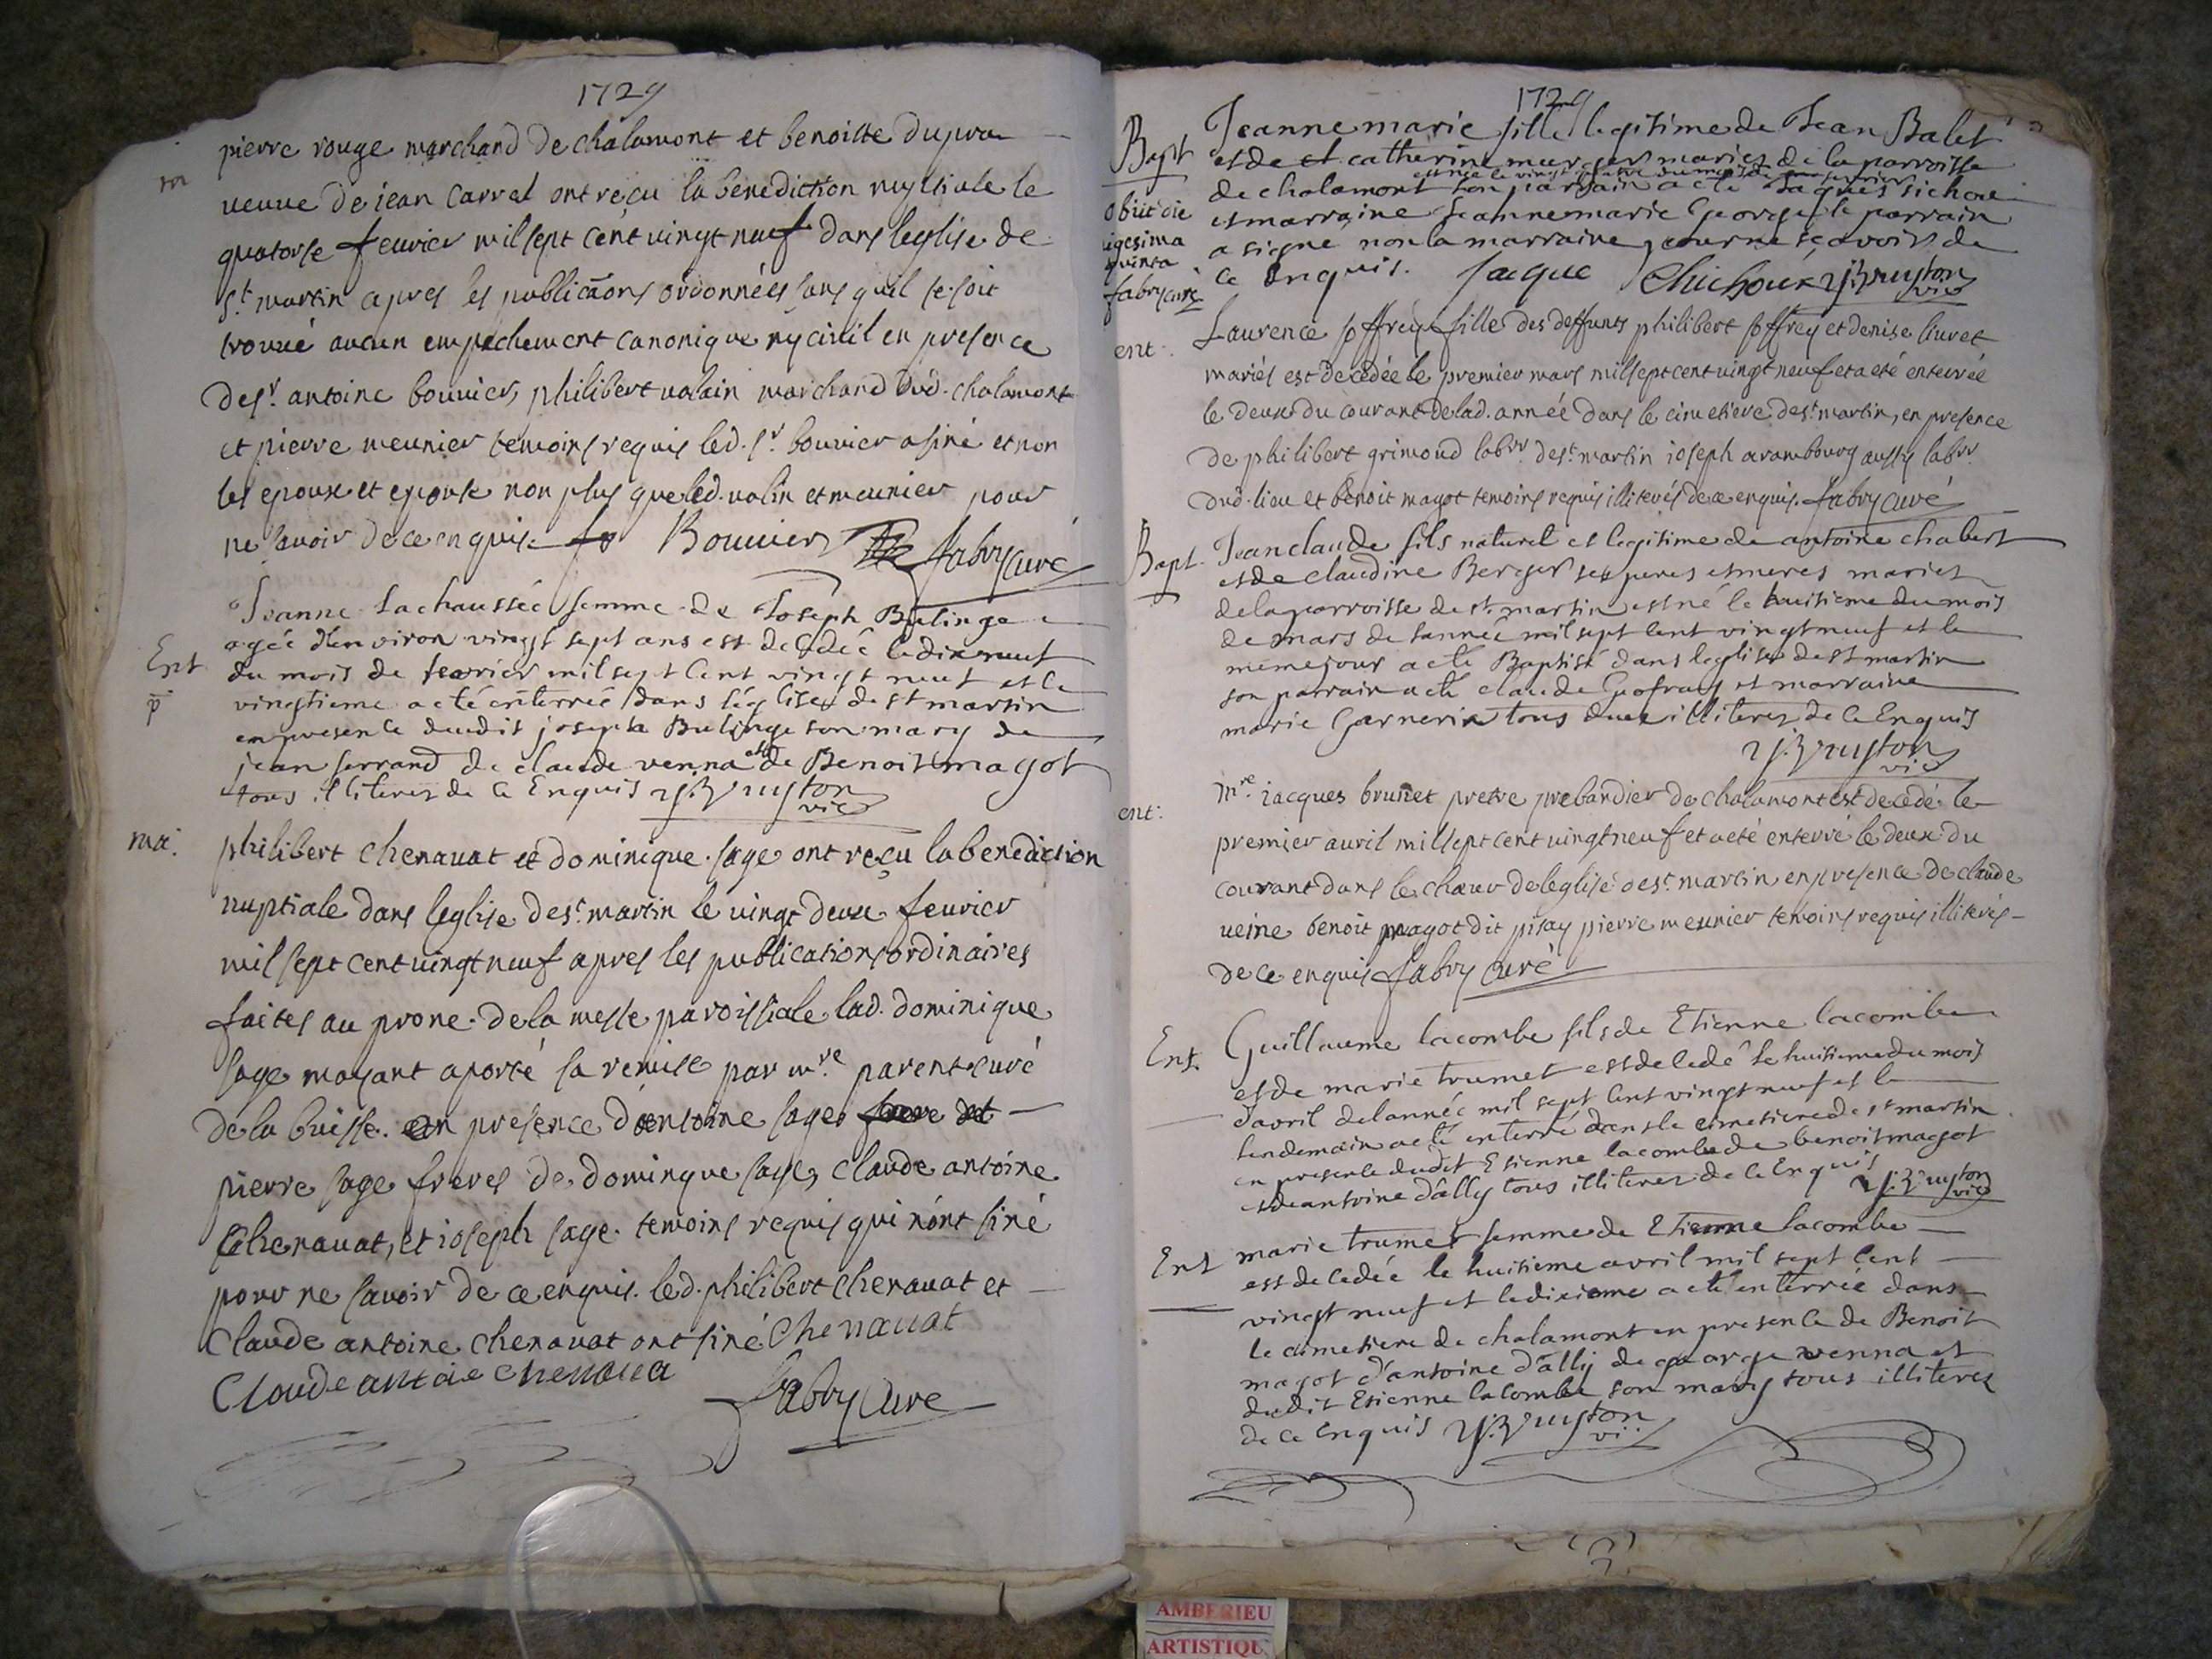 1729
m
pierre rouge marchand de chalamont et benoitte dupra
veuve de jean Carrel ont reçu la benediction nuptiale le
quatorse feuvrier mil sept cent vingt neuf dans leglise de
St martin apres les publicãons ordonnées sans quil se soit
trouvé aucun empechement canonique ny civil en presence
de sr. antoine bouvier, philibert valain marchand dud. chalamont
et pierre meunier temoins requis led. sr. bouvier a siné et non
les epoux et epouse non plus que led. valin et meunier pour
ne savoir de ce enquis Bouvier fabry curé
Ent
p
Jeanne Lachaussée femme de Joseph Bulinge
agée denviron vingt sept ans est decedée le dix neuf
du mois de fevrier mil sept Cent vingt neuf et le
vingtieme a eté enterrée dans léglise de st martin
en presence dudit joseph Bulinge son mary de
jean ferrand de claude venna et de Benoit magot
tous illiterez de Ce Enquis vic
ma.
philibert chenavat et dominique sage ont reçu la benediction
nuptiale dans leglise de st. martin le vingt deux feuvrier
mil sept cent vingt neuf apres les publications ordinaires
faites au prone de la messe paroissiale lad. dominique
sage mayant aporté sa remise par mre. parent curé
de la buisse. en presence dantoine sage
pierre sage freres de dominque sage, claude antoine
Chenavat, et ioseph sage temoins requis qui nónt siné
pour ne savoir de ce enquis. led. philibert chenavat et
Claude antoine chenavat ont siné Chenavat
Claude antoie chenava
fabry Cure
1729
Bapt
Jeanne marie fille legitime de Jean Balet
et de catherine mariez de la parroisse
est née le vingt
de chalamont son parrain a eté Jaques sichoux
et marraine Jeanne marie George le parrain
a signe non la marraine pour ne sçavoir de
Ce Enquis. Jaque Chichoux vic
obiit die
vigesima
quinta
fabry curé
ent.
Laurence joffrey fille des deffunts philibert joffrey et denise
mariés est decedée le premier mars mil sept cent vingt neuf et a eté enterrée
le deux du courant de lad. année dans le cimetiere de st martin, en presence
de philibert grimoud labvr. de st martin ioseph arambourg aussy labvr.
dud. lieu et benoit magot temoins requis illiterés de ce enquis. fabry curé
Bapt.
Jean claude fils naturel et legitime de antoine chabert
et de claudine Berger ses peres et meres mariez
de la parroisse de st martin est né le huitieme du mois
de mars de lannée mil sept Cent vingt neuf et le
meme jour a eté Baptisé dans leglise de st martin
son parrain a eté claude Geofray et marraine
marie Garnerin tous deux illiterez de Ce Enquis
vic
ent:
mre. iacques brunet pretre prebandier de chalamont est decedé le
premier avril mil sept cent vingt neuf et a eté enterré le deux du
courant dans le chœur de leglise de st martin en presence de claude
veine benoit magot dit pisay pierre meunier temoins requis illiterés
de ce enquis fabry curé
Ent.
Guillaume lacombe fils de Etienne lacombe
et de marie trumet est decedé le huitieme du mois
davril de lannée mil sept Cent vingt neuf et le
lendemain a eté enterré dans le cimetiere de st martin
en presence dudit Etienne lacombe de benoit magot
et de antoine dálly tous illiterez de Ce Enquis
vic
Ent
marie trumet femme de Etienne lacombe
est decedée le huitieme avril mil sept Cent
vingt neuf et le dixieme a eté enterrée dans
le cimetiere de chalamont en presence de Benoit
magot d'antoine dálly de george venna et
dudit Etienne lacombe son mary tous illiterez
de Ce Enquis
vic
AMBERIEU
ARTISTIQU